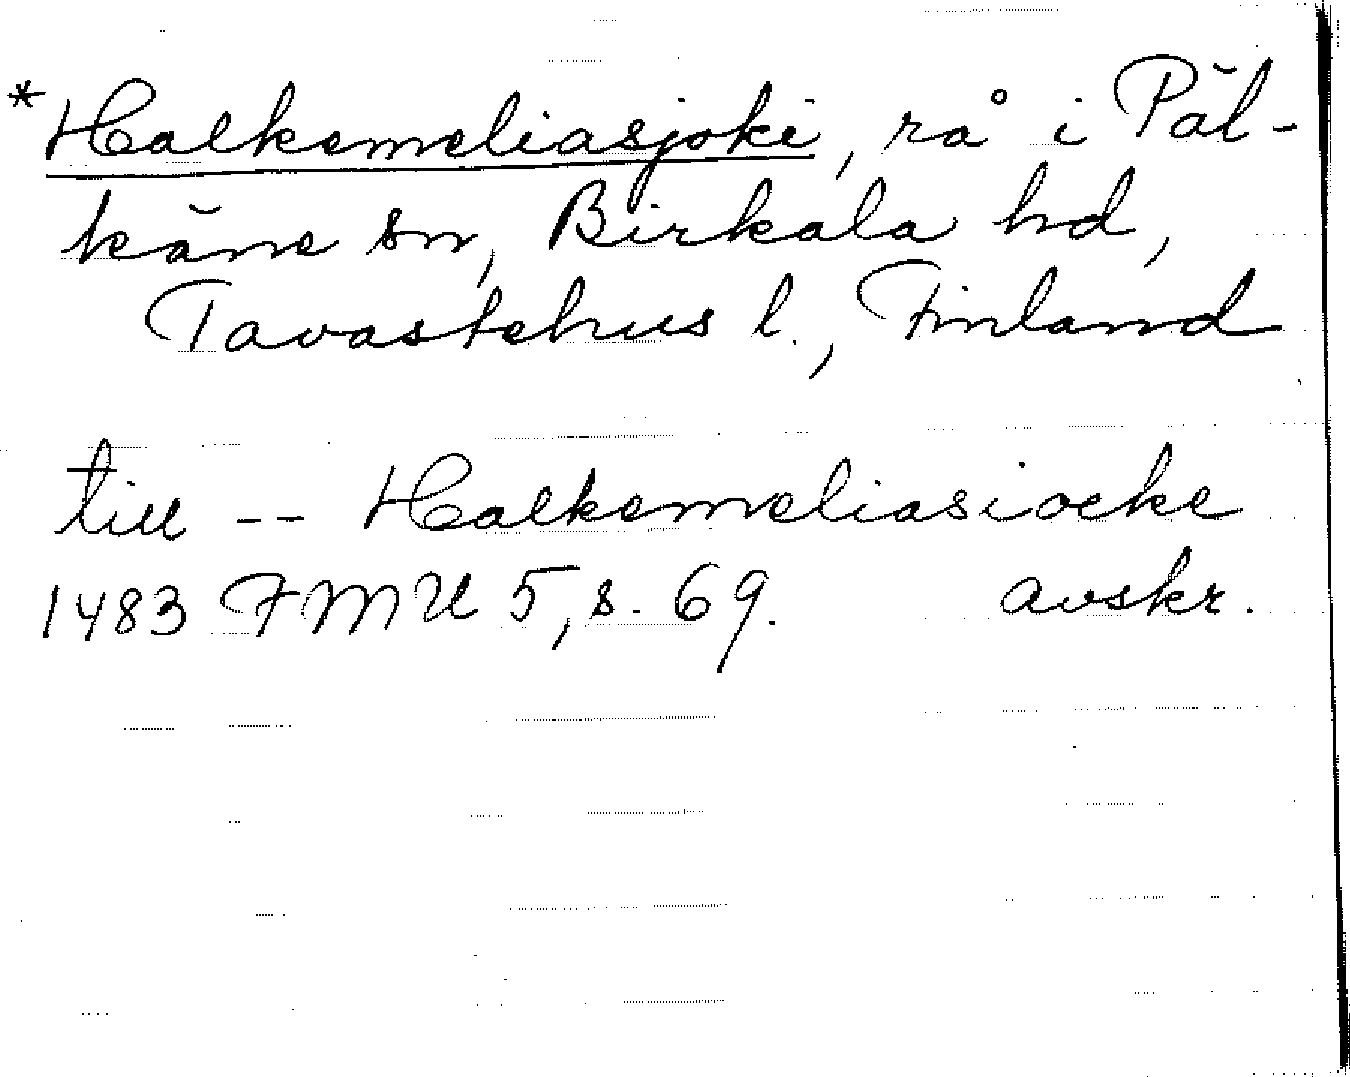 *Halkemeliasjoki, rå i Päl-
käne sn, Birkala hd,
Tavastehus l., Finland
till -- Halkemeliasiocke
1483 FMU 5, s. 69. avskr.